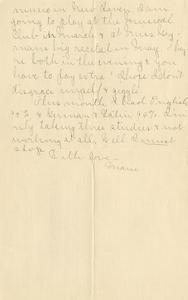 music in New Haven. I am
going to play at the musical
Club in March & at Miss
recital in May. They
are both in the evening & you
have to pay extra! I hope I don't
disgrace myself & giggle!
This month I had English
& German & Latin 90%. I'm
only taking three studies & not
working at all. Well I must
stop.
With love -